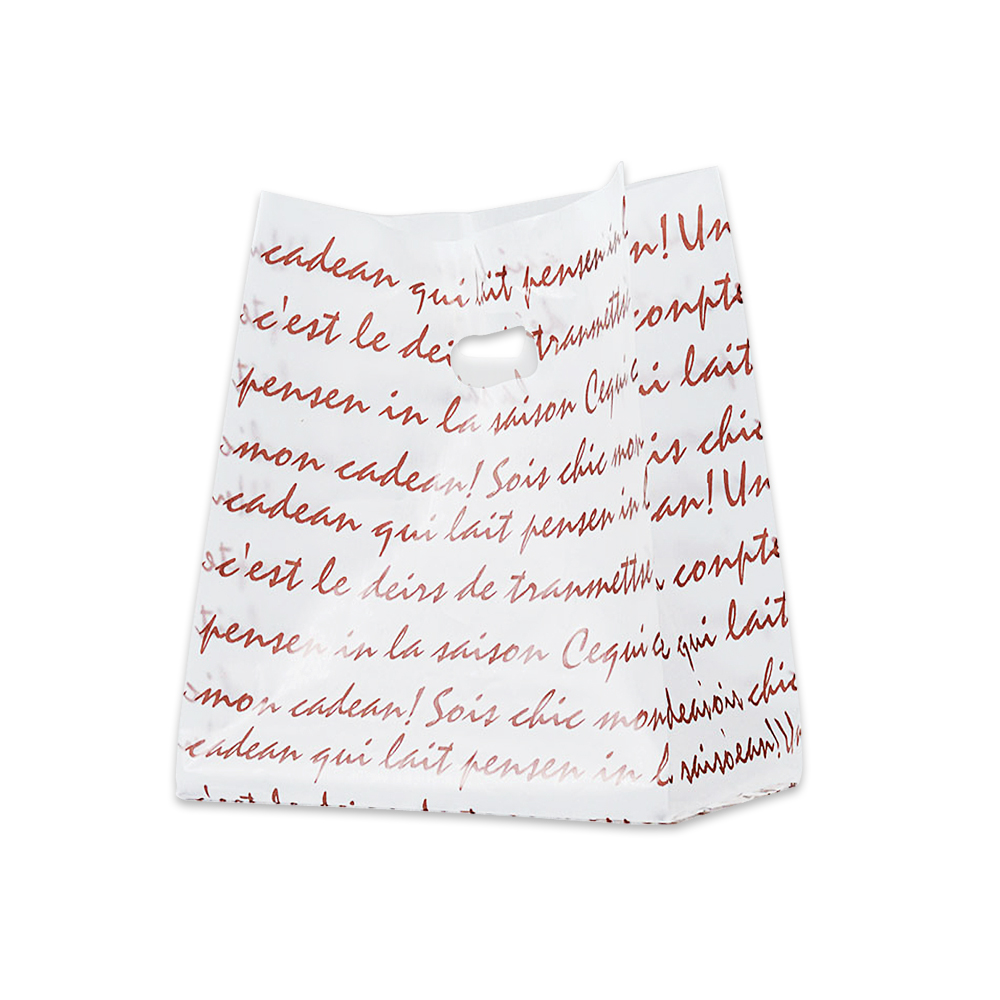 cadean qui lait pensen in l n! Un
c'est le dei tranmettse conpte
pensen in la saison Cequi c ui lait
mon cadean! Sois chic mon is chic
cadean qui lait pensen in l an! Un
c'est le deirs de tranmettse conpte
pensen in la saison Cequi a qui lait
mon cadean! Sois chic mon sois chic
cadean qui lait pensen in l saison ean! Un
c'est le deirs de